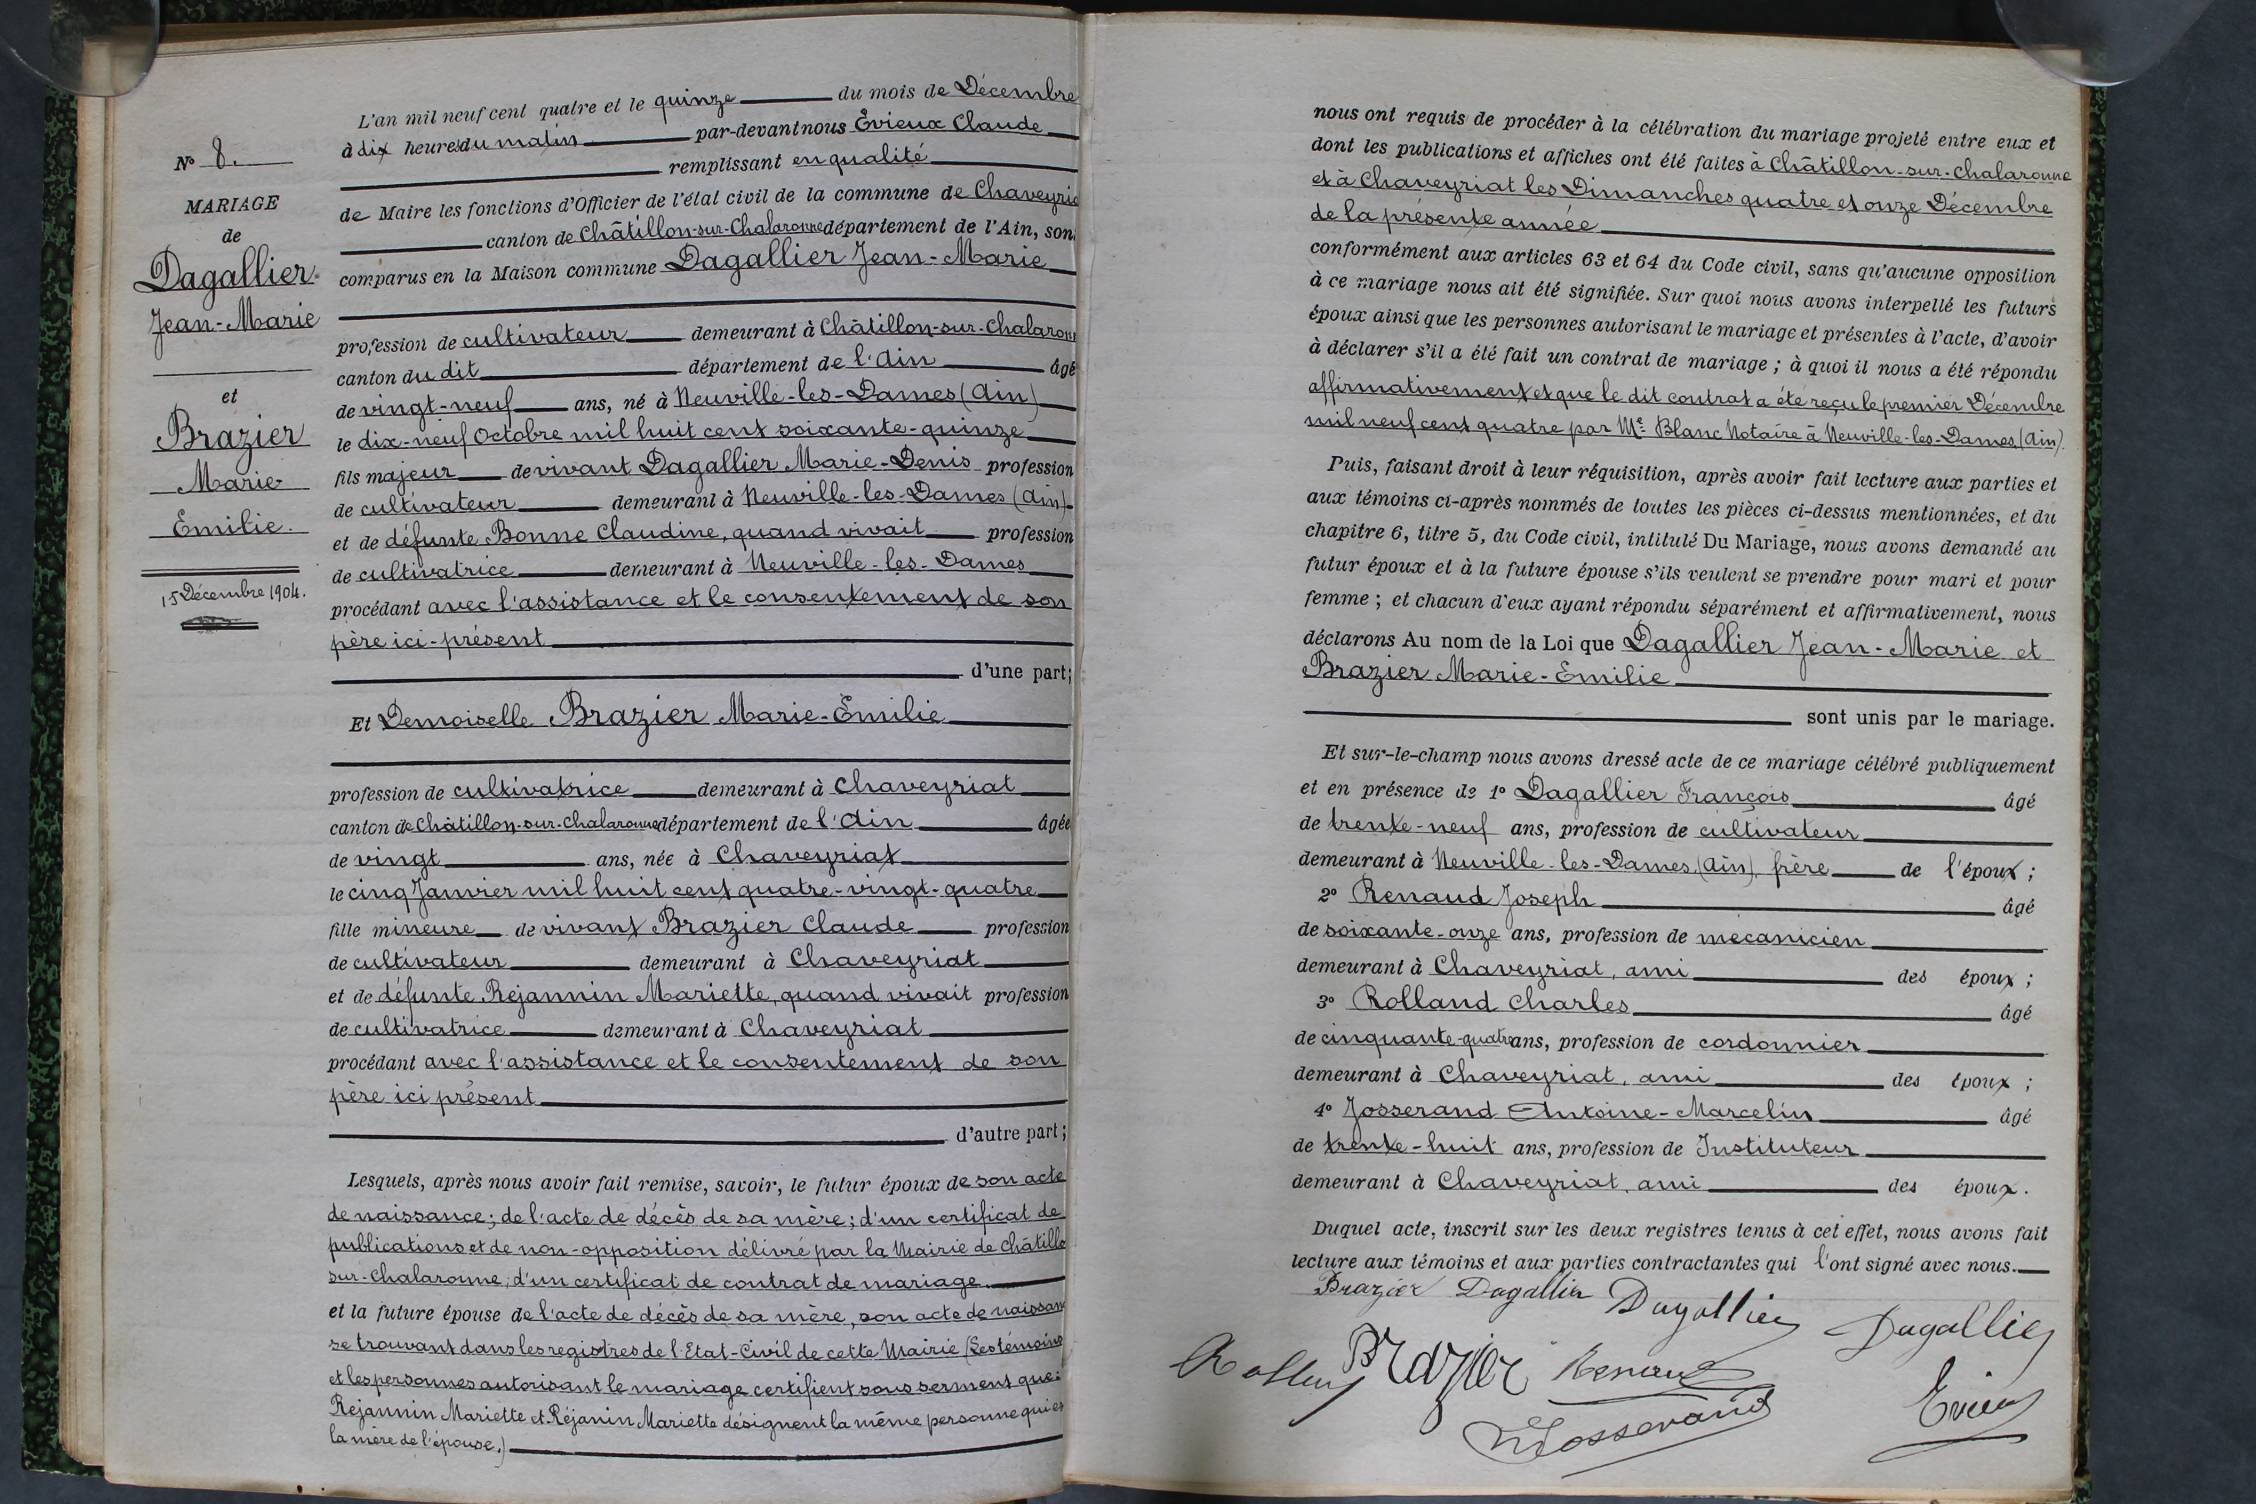 N° 8.
MARIAGE
de
Dagallier
Jean-Marie
et
Brazier
Marie
Émilie.
15 Décembre 1904.
L'an mil neuf cent quatre et le quinze du mois de Décembre
à dix heures du matin par-devant nous Évieux Claude
remplissant en qualité
de Maire les fonctions d'Officier de l'état civil de la commune de Chaveyria
canton de Châtillon-sur-Chalaronne département de l'Ain, son
comparus en la Maison commune Dagallier Jean-Marie
profession de cultivateur demeurant à Châtillon-sur-Chalaronn
canton du dit département de l'Ain âgé
de vingt-neuf ans, né à Neuville-les-Dames (Ain)
le dix-neuf Octobre mil huit cent soixante-quinze
fils majeur de vivant Dagallier Marie-Denis profession
de cultivateur demeurant à Neuville-les-Dames (Ain)
et de défunte Bonne Claudine, quand vivait profession
de cultivatrice demeurant à Neuville-les-Dames
procédant avec l'assistance et le consentement de son
père ici-présent
d'une part;
Et Demoiselle Brazier Marie-Émilie
profession de cultivatrice demeurant à Chaveyriat
canton de Châtillon-sur-Chalaronne département de l'Ain âgée
de vingt ans, née à Chaveyriat
le cinq Janvier mil huit cent quatre-vingt-quatre
fille mineure de vivant Brazier Claude profession
de cultivateur demeurant à Chaveyriat
et de défunte Rejannin Mariette, quand vivait profession
de cultivatrice demeurant à Chaveyriat
procédant avec l'assistance et le consentement de son
père ici présent
d'autre part;
Lesquels, après nous avoir fait remise, savoir, le futur époux de son acte
de naissance; de l'acte de décès de sa mère; d'un certificat de
publications et de non-opposition délivré par la Mairie de Châtillo
sur-Chalaronne; d'un certificat de contrat de mariage.
et la future épouse de l'acte de décès de sa mère, son acte de naissan
se trouvant dans les registres de l'Etat-Civil de cette Mairie (Les témoins
et les personnes autorisant le mariage certifient sous serment que:
Rejannin Mariette et Réjanin Mariette désignent la même personne qui es
la mère de l'épouse.)
nous ont requis de procéder à la célébration du mariage projeté entre eux et
dont les publications et affiches ont été faites à Châtillon-sur-Chalaronne
et à Chaveyriat les Dimanches quatre et onze Décembre
de la présente année
conformément aux articles 63 et 64 du Code civil, sans qu'aucune opposition
à ce mariage nous ait été signifiée. Sur quoi nous avons interpellé les futurs
époux ainsi que les personnes autorisant le mariage et présentes à l'acte, d'avoir
à déclarer s'il a été fait un contrat de mariage; à quoi il nous a été répondu
affirmativement et que le dit contrat a été reçu le premier Décembre
mil neuf cent quatre par Me Blanc Notaire à Neuville-les-Dames (Ain).
Puis, faisant droit à leur réquisition, après avoir fait lecture aux parties et
aux témoins ci-après nommés de toutes les pièces ci-dessus mentionnées, et du
chapitre 6, titre 5, du Code civil, intitulé Du Mariage, nous avons demandé au
futur époux et à la future épouse s'ils veulent se prendre pour mari et pour
femme; et chacun d'eux ayant répondu séparément et affirmativement, nous
déclarons Au nom de la Loi que Dagallier Jean-Marie et
Brazier Marie-Émilie
sont unis par le mariage.
Et sur-le-champ nous avons dressé acte de ce mariage célébré publiquement
et en présence de 1° Dagallier François âgé
de trente-neuf ans, profession de cultivateur
demeurant à Neuville-les-Dames, (Ain), frère de l'époux;
2° Renaud Joseph âgé
de soixante-onze ans, profession de mécanicien
demeurant à Chaveyriat, ami des époux;
3° Rolland Charles âgé
de cinquante-quatre ans, profession de cordonnier
demeurant à Chaveyriat, ami des époux;
4° Josserand Antoine-Marcelin âgé
de trente-huit ans, profession de Instituteur
demeurant à Chaveyriat, ami des époux.
Duquel acte, inscrit sur les deux registres tenus à cet effet, nous avons fait
lecture aux témoins et aux parties contractantes qui l'ont signé avec nous.
Brazier Dagallier Dagallier Dagallier
Brazier Renaud Evieux
Josserand